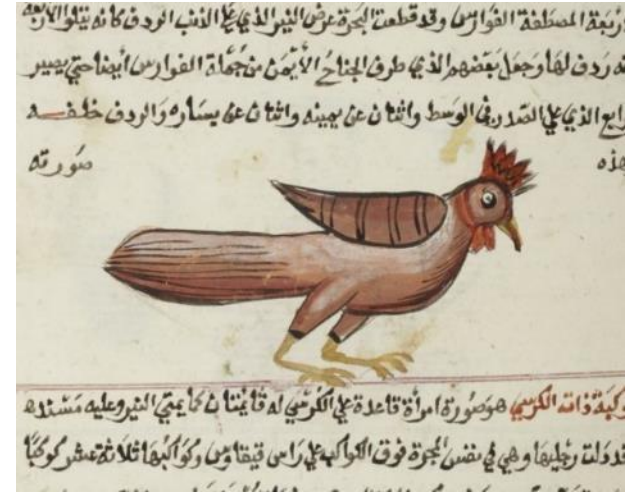 اربعة المصطفة الفوارس وقد قطعت المجرة عرض النير الذي علي الذنب الردف كانه يتلوا الاربعة
ردف لها وجعل بعضهم الذي طرف الجناح الأيمن من جملة الفوارس أيضا حتي يصير
رابع الذي علي الصدر في الوسط واثنان عن يمينه واثنان عن يساره والردف خلفه
وهذه صورته
كوكبة ذات الكرسي هو صورة امرأة قاعدة علي الكرسي له قائمتان كايمتي النير وعليه مسند
قد دلت رجليها وهي في نفس المجرة فوق الكواكب علي راس قيقاوس وكواكبها ثلاثة عشر كوكبا